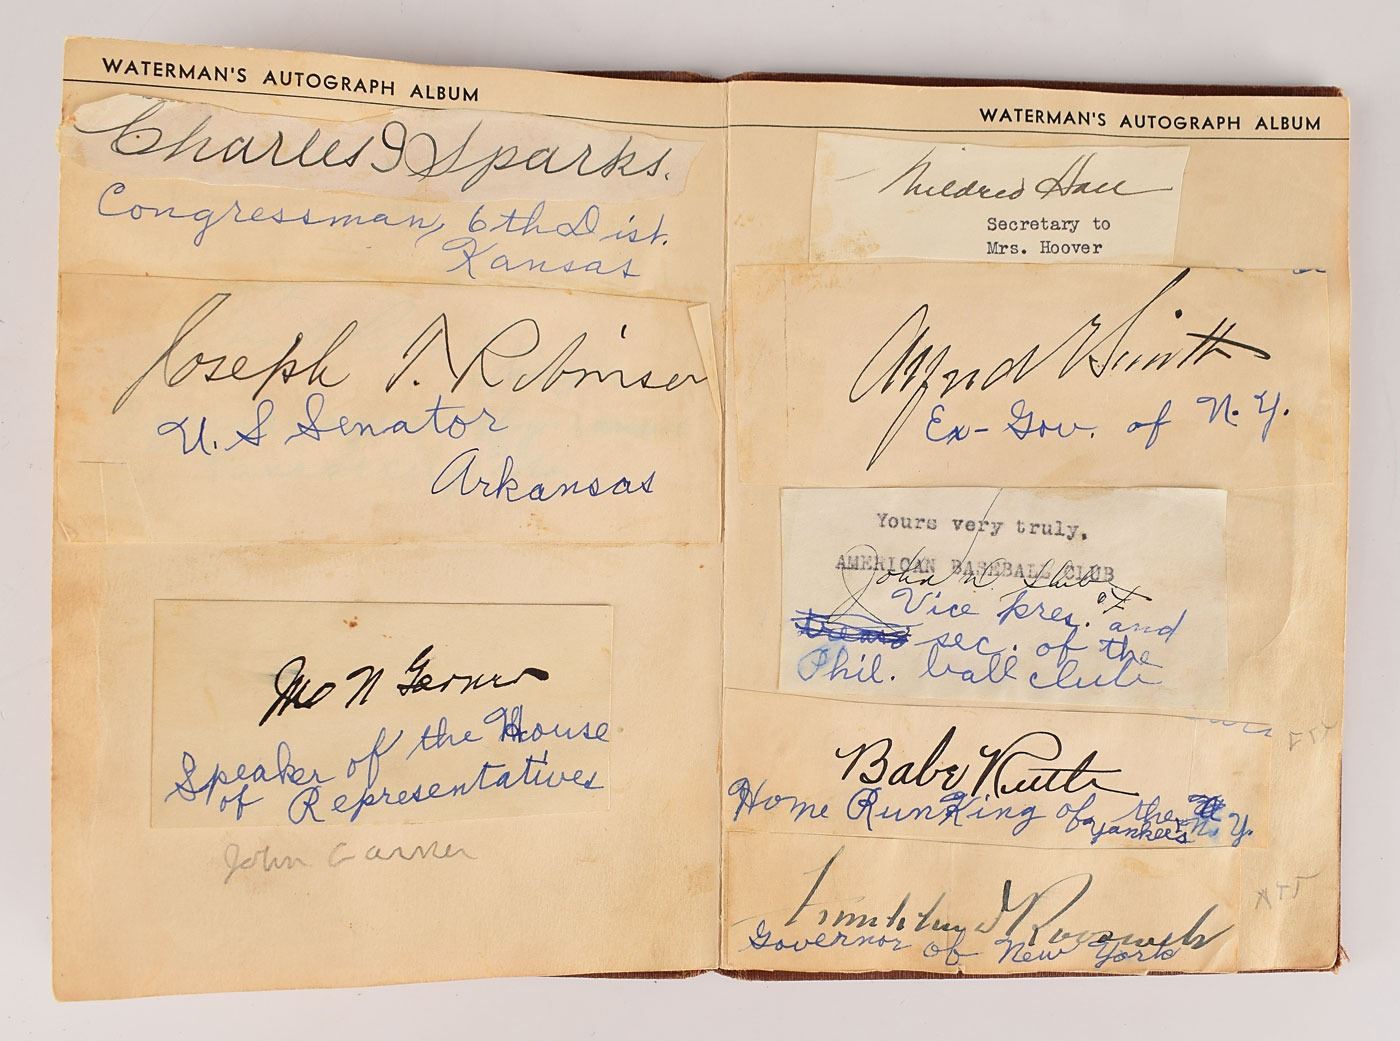 WATERMAN'S AUTOGRAPH ALBUM
Charles I Sparks.
Congressman, 6th Dist.
Kansas
Joseph T. Robinson
U. S Senator
Arkansas
Jno N Garner
Speaker of the House
of Representatives
John Garner
WATERMAN'S AUTOGRAPH ALBUM
Mildred Hall
Secretary to
Mrs. Hoover
Alfred E Smith
Ex-Gov. of N. Y.
Yours very truly,
AMERICAN BASEBALL CLUB
John D. Shibe
Vice pres. and
sec. of the
Phil. ball club
Babe Ruth
Home Run King of the N. Y.
Yankees
Franklin D Roosevelt
Governor of New York